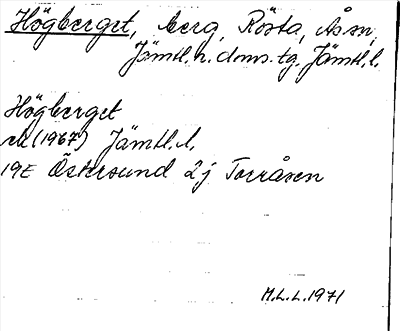 Högberget, berg, Rösta, Ås sn,
Jämtl. n. doms. tg. Jämtl. l.
Högberget
ek (1967) Jämtl. l.
19E Östersund 2j Torråsen
M.L.L. 1971